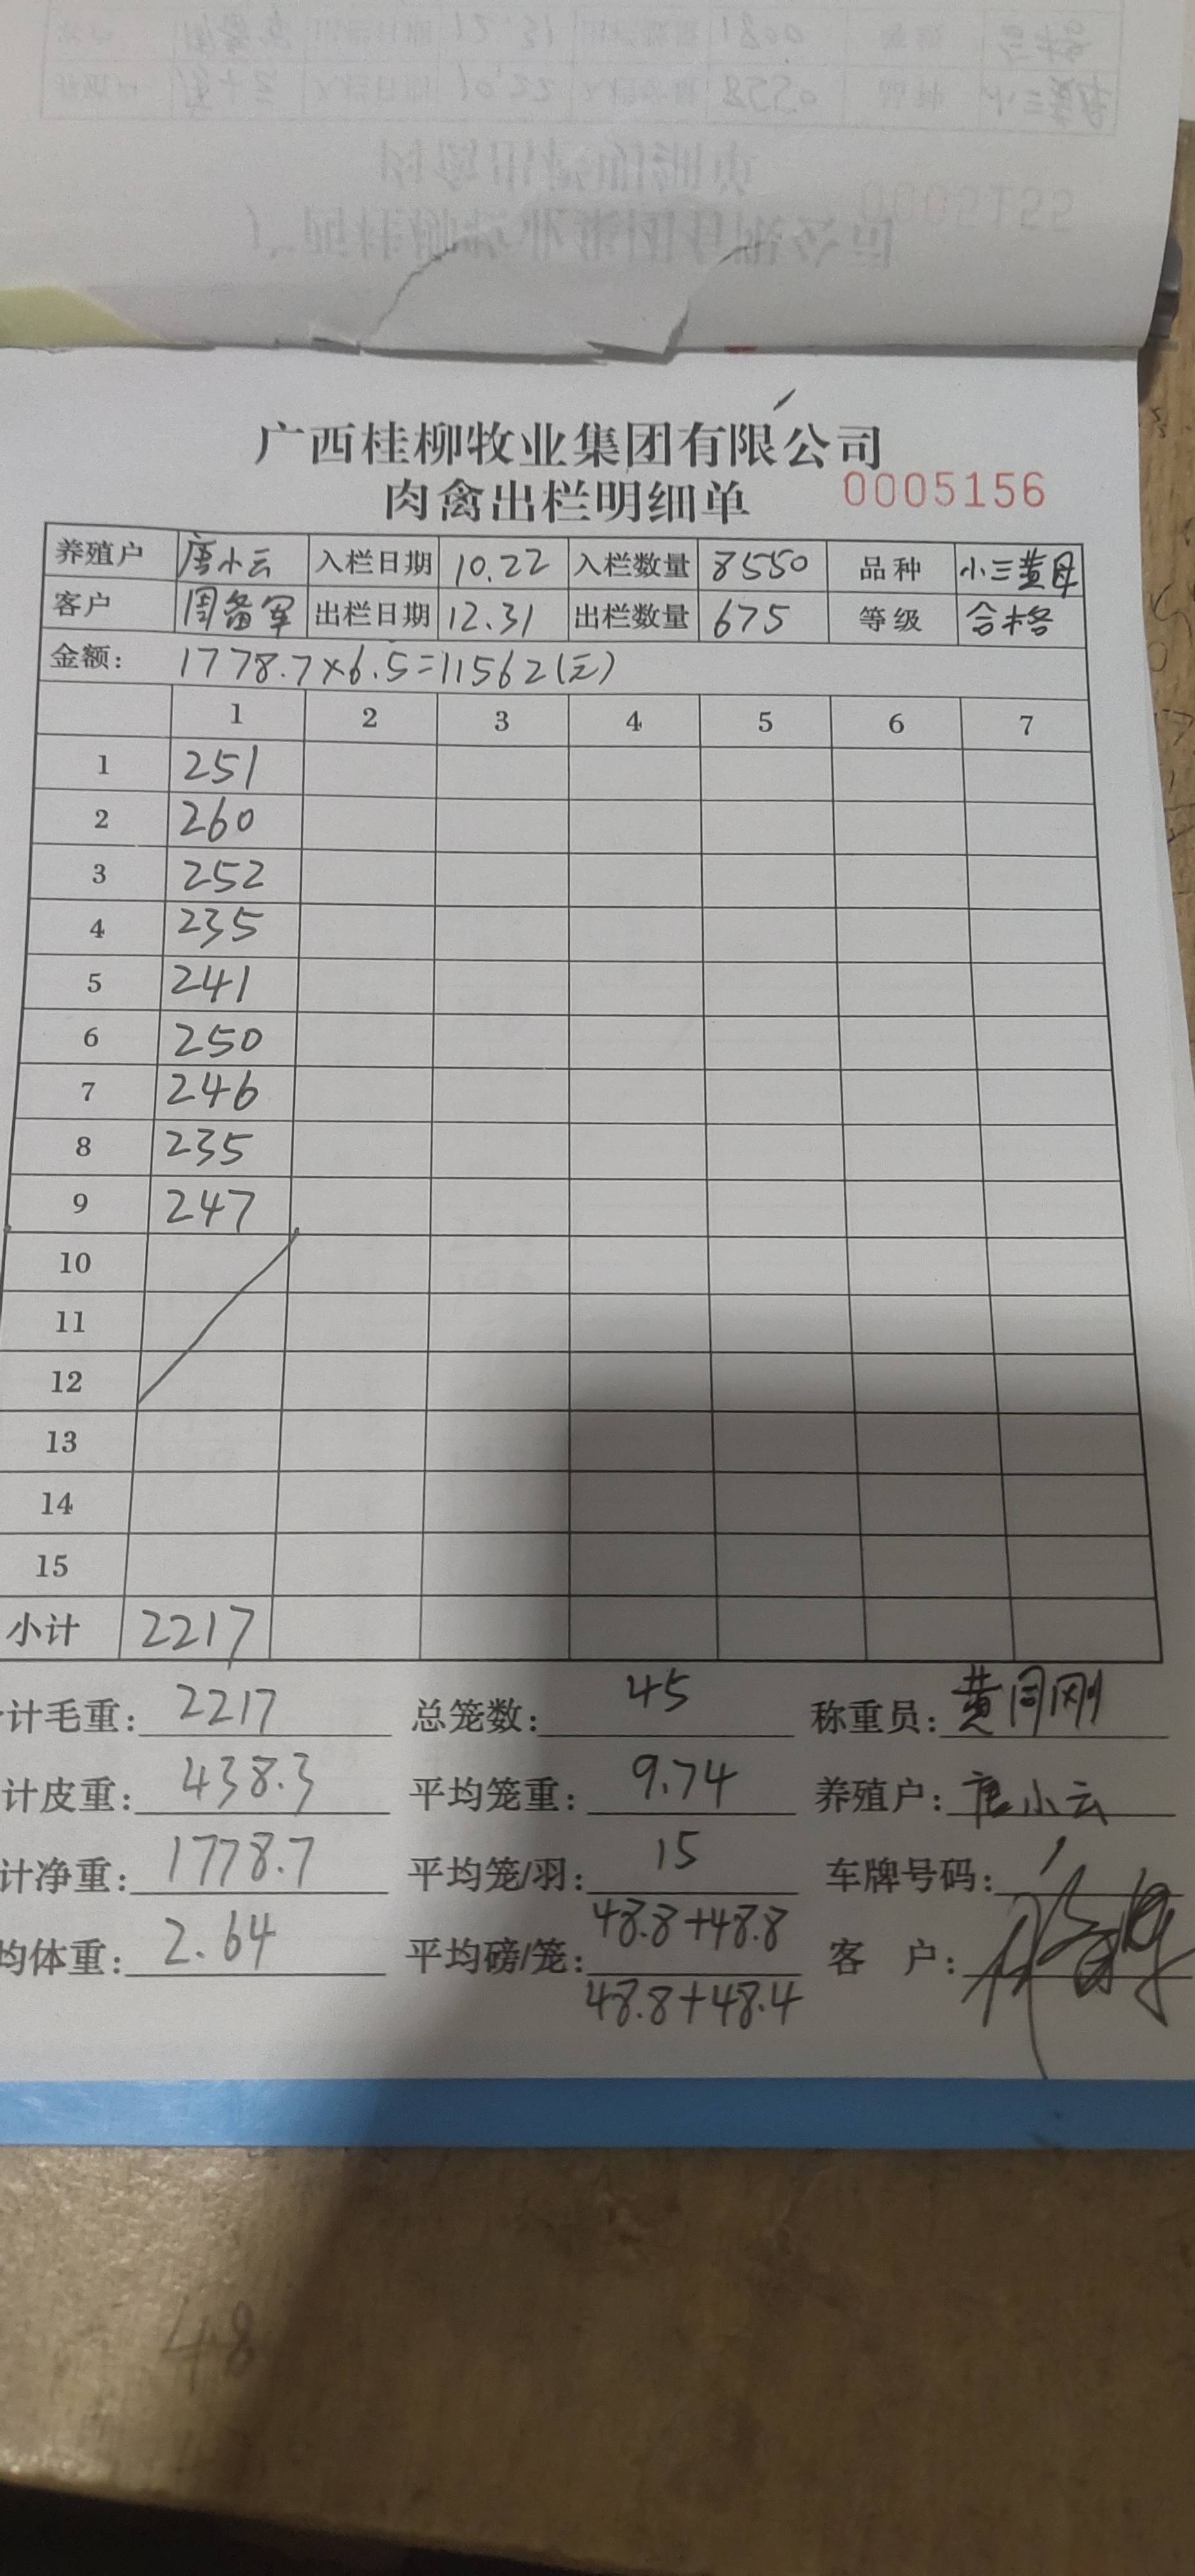 广西桂柳牧业集团有限公司
肉禽出栏明细单 0005156
养殖户 唐小云 入栏日期 10.22 入栏数量 8550 品种 小三黄母
客户 周备军 出栏日期 12.31 出栏数量 675 等级 合格
金额: 1778.7×6.5=11562(元)
1 2 3 4 5 6 7
1 251
2 260
3 252
4 235
5 241
6 250
7 246
8 235
9 247
10
11
12
13
14
15
小计 2217
计毛重: 2217 总笼数: 45 称重员:
计皮重: 438.3 平均笼重: 9.74 养殖户: 唐小云
计净重: 1778.7 平均笼/羽: 15 车牌号码:
均体重: 2.64 平均磅/笼: 48.8+48.8 客 户:
48.8+48.4
48